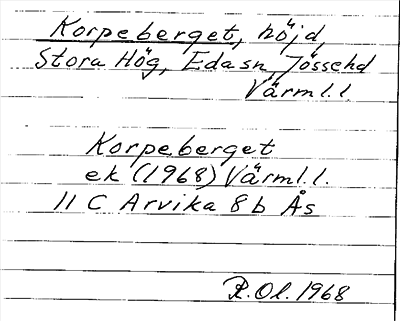 Korpeberget, höjd,
Stora Hög, Eda sn, Jössehd
Värml.l.
Korpeberget
ek (1968) Värml.l.
11 C Arvika 8 b Ås
R. Ol. 1968